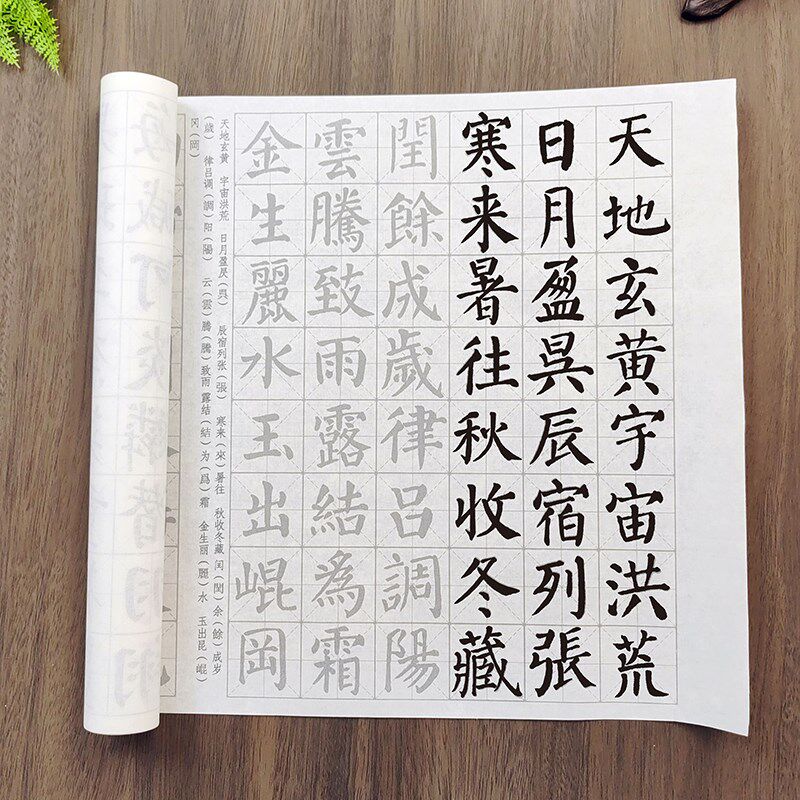 天地玄黄宇宙洪荒
日月盈呉辰宿列張
寒来暑往秋收冬藏
閏餘成歲律呂調陽
雲騰致雨露結為霜
金生麗水玉出崐岡
天地玄黄 宇宙洪荒 日月盈昃（呉） 辰宿列张（張） 寒来（來）暑往 秋收冬藏 闰（閏）余（餘）成岁
（歲） 律吕调（調）阳（陽） 云（雲）腾（騰）致雨 露结（結）为（爲）霜 金生丽（麗）水 玉出昆（崐）
冈（岡）